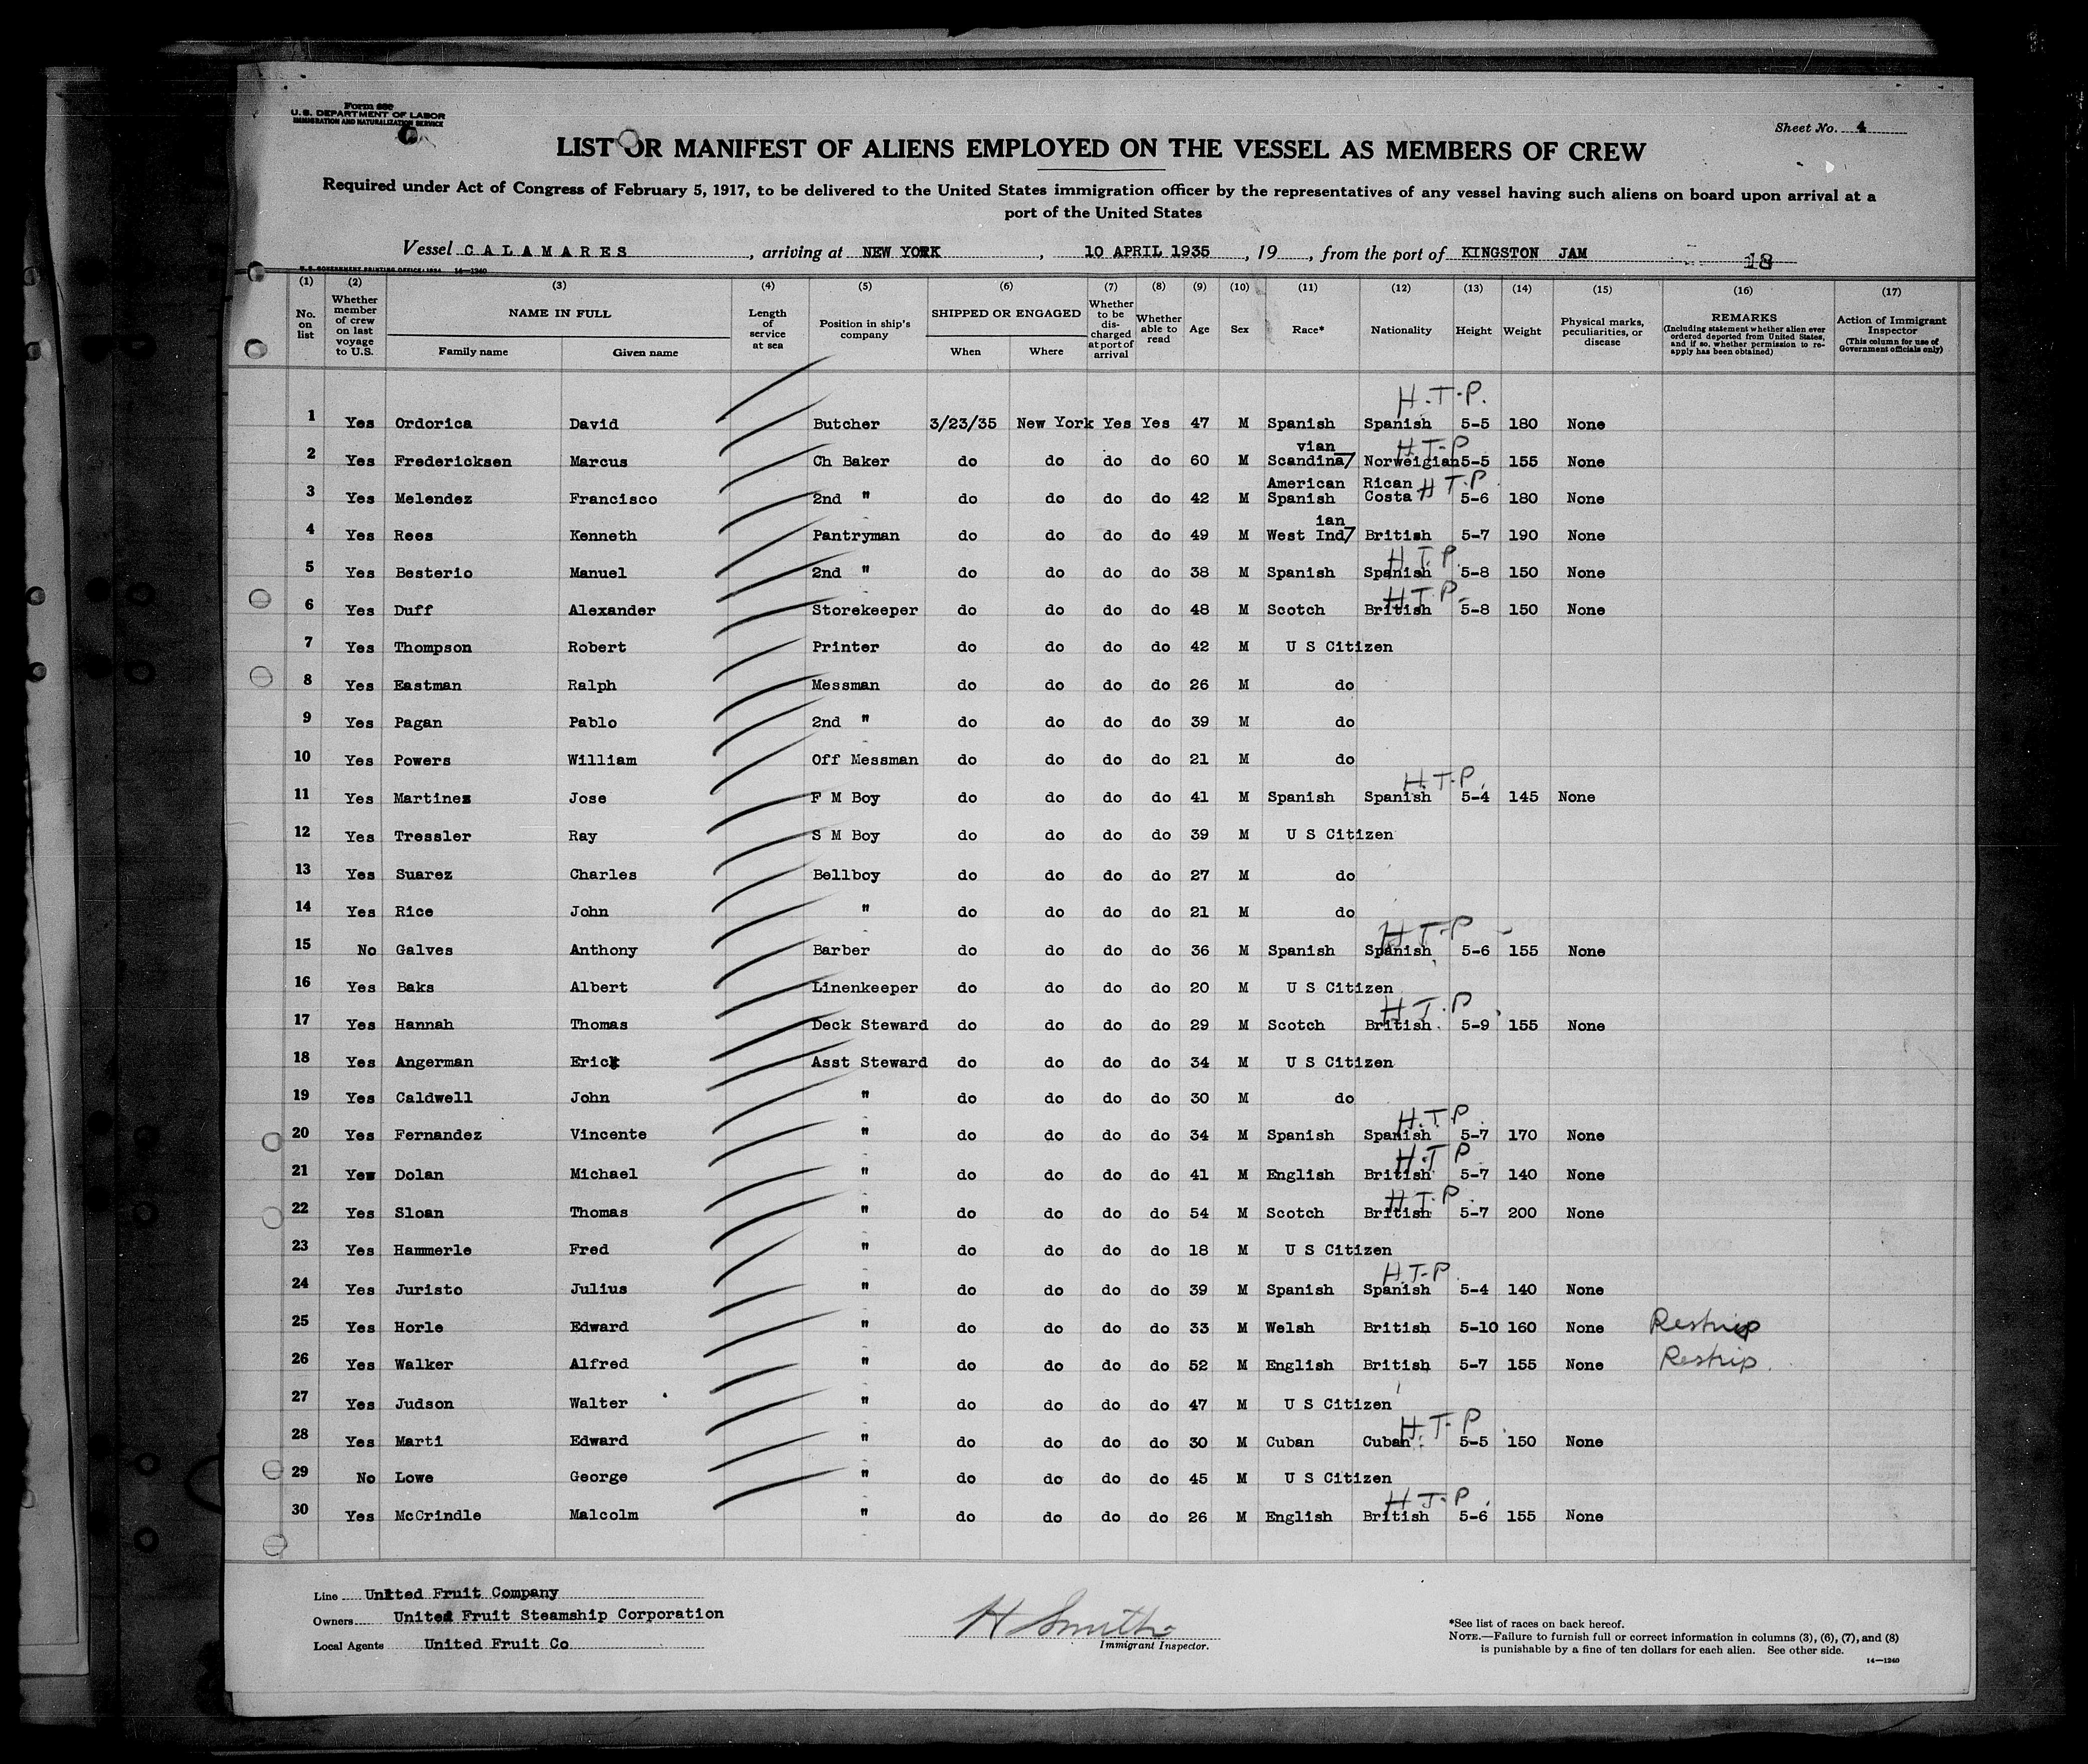 Form 680
U.S. DEPARTMENT OF LABOR
IMMIGRATION AND NATURALIZATION SERVICE
Sheet No. 4
LIST OR MANIFEST OF ALIENS EMPLOYED ON THE VESSEL AS MEMBERS OF CREW
Required under Act of Congress of February 5, 1917, to be delivered to the United States immigration officer by the representatives of any vessel having such aliens on board upon arrival at a
port of the United States
Vessel CALAMARES, arriving at NEW YORK, 10 APRIL 1935, 19, from the port of KINGSTON JAM 18
U.S. GOVERNMENT PRINTING OFFICE: 1934 14—1240
(1) (2) (3) (4) (5) (6) (7) (8) (9) (10) (11) (12) (13) (14) (15) (16) (17)
No. on list
Whether member of crew on last voyage to U.S.
NAME IN FULL
Family name
Given name
Length of service at sea
Position in ship's company
SHIPPED OR ENGAGED
When
Where
Whether to be discharged at port of arrival
Whether able to read
Age
Sex
Race*
Nationality
Height
Weight
Physical marks, peculiarities, or disease
REMARKS
(Including statement whether alien ever ordered deported from United States, and if so, whether permission to re-apply has been obtained)
Action of Immigrant Inspector
(This column for use of Government officials only)
H.T.P.
1 Yes Ordorica David Butcher 3/23/35 New York Yes Yes 47 M Spanish Spanish 5-5 180 None
vian H.T.P
2 Yes Fredericksen Marcus Ch Baker do do do do 60 M Scandina/ Norweigian 5-5 155 None
American Rican H T.P
3 Yes Melendez Francisco 2nd " do do do do 42 M Spanish Costa 5-6 180 None
ian
4 Yes Rees Kenneth Pantryman do do do do 49 M West Ind/ British 5-7 190 None
H.T.P.
5 Yes Besterio Manuel 2nd " do do do do 38 M Spanish Spanish 5-8 150 None
H.T.P.
6 Yes Duff Alexander Storekeeper do do do do 48 M Scotch British 5-8 150 None
7 Yes Thompson Robert Printer do do do do 42 M U S Citizen
8 Yes Eastman Ralph Messman do do do do 26 M do
9 Yes Pagan Pablo 2nd " do do do do 39 M do
10 Yes Powers William Off Messman do do do do 21 M do
H.T.P.
11 Yes Martinez Jose F M Boy do do do do 41 M Spanish Spanish 5-4 145 None
12 Yes Tressler Ray S M Boy do do do do 39 M U S Citizen
13 Yes Suarez Charles Bellboy do do do do 27 M do
14 Yes Rice John " do do do do 21 M do
H.T.P
15 No Galves Anthony Barber do do do do 36 M Spanish Spanish 5-6 155 None
16 Yes Baks Albert Linenkeeper do do do do 20 M U S Citizen
H.T.P
17 Yes Hannah Thomas Deck Steward do do do do 29 M Scotch British 5-9 155 None
18 Yes Angerman Erick Asst Steward do do do do 34 M U S Citizen
19 Yes Caldwell John " do do do do 30 M do
H.T.P
20 Yes Fernandez Vincente " do do do do 34 M Spanish Spanish 5-7 170 None
H.T.P
21 Yew Dolan Michael " do do do do 41 M English British 5-7 140 None
H.T.P.
22 Yes Sloan Thomas " do do do do 54 M Scotch British 5-7 200 None
23 Yes Hammerle Fred " do do do do 18 M U S Citizen
H.T.P
24 Yes Juristo Julius " do do do do 39 M Spanish Spanish 5-4 140 None
25 Yes Horle Edward " do do do do 33 M Welsh British 5-10 160 None Reship
26 Yes Walker Alfred " do do do do 52 M English British 5-7 155 None Reship.
27 Yes Judson Walter " do do do do 47 M U S Citizen
H.T.P
28 Yes Marti Edward " do do do do 30 M Cuban Cuban 5-5 150 None
29 No Lowe George " do do do do 45 M U S Citizen
H.T.P.
30 Yes McCrindle Malcolm " do do do do 26 M English British 5-6 155 None
Line United Fruit Company
Owners United Fruit Steamship Corporation
Local Agents United Fruit Co
H Smith
Immigrant Inspector.
*See list of races on back hereof.
NOTE.—Failure to furnish full or correct information in columns (3), (6), (7), and (8)
is punishable by a fine of ten dollars for each alien. See other side.
14—1240